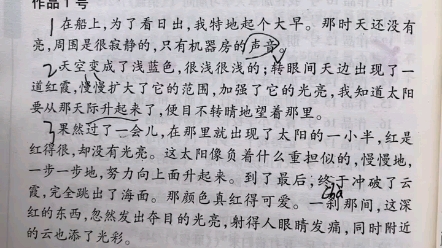 作品1号
1在船上，为了看日出，我特地起个大早。那时天还没有
亮，周围是很寂静的，只有机器房的声音。
2天空变成了浅蓝色，很浅很浅的；转眼间天边出现了一
道红霞，慢慢扩大了它的范围，加强了它的光亮，我知道太阳
要从那天际升起来了，便目不转睛地望着那里。
3果然过了一会儿，在那里就出现了太阳的一小半，红是
红得很，却没有光亮。这太阳像负着什么重担似的，慢慢地，
一步一步地，努力向上面升起来。到了最后，终于冲破了云
霞，完全跳出了海面。那颜色真红得可爱。一刹那间，这深
chà
红的东西，忽然发出夺目的光亮，射得人眼睛发痛，同时附近
的云也添了光彩。